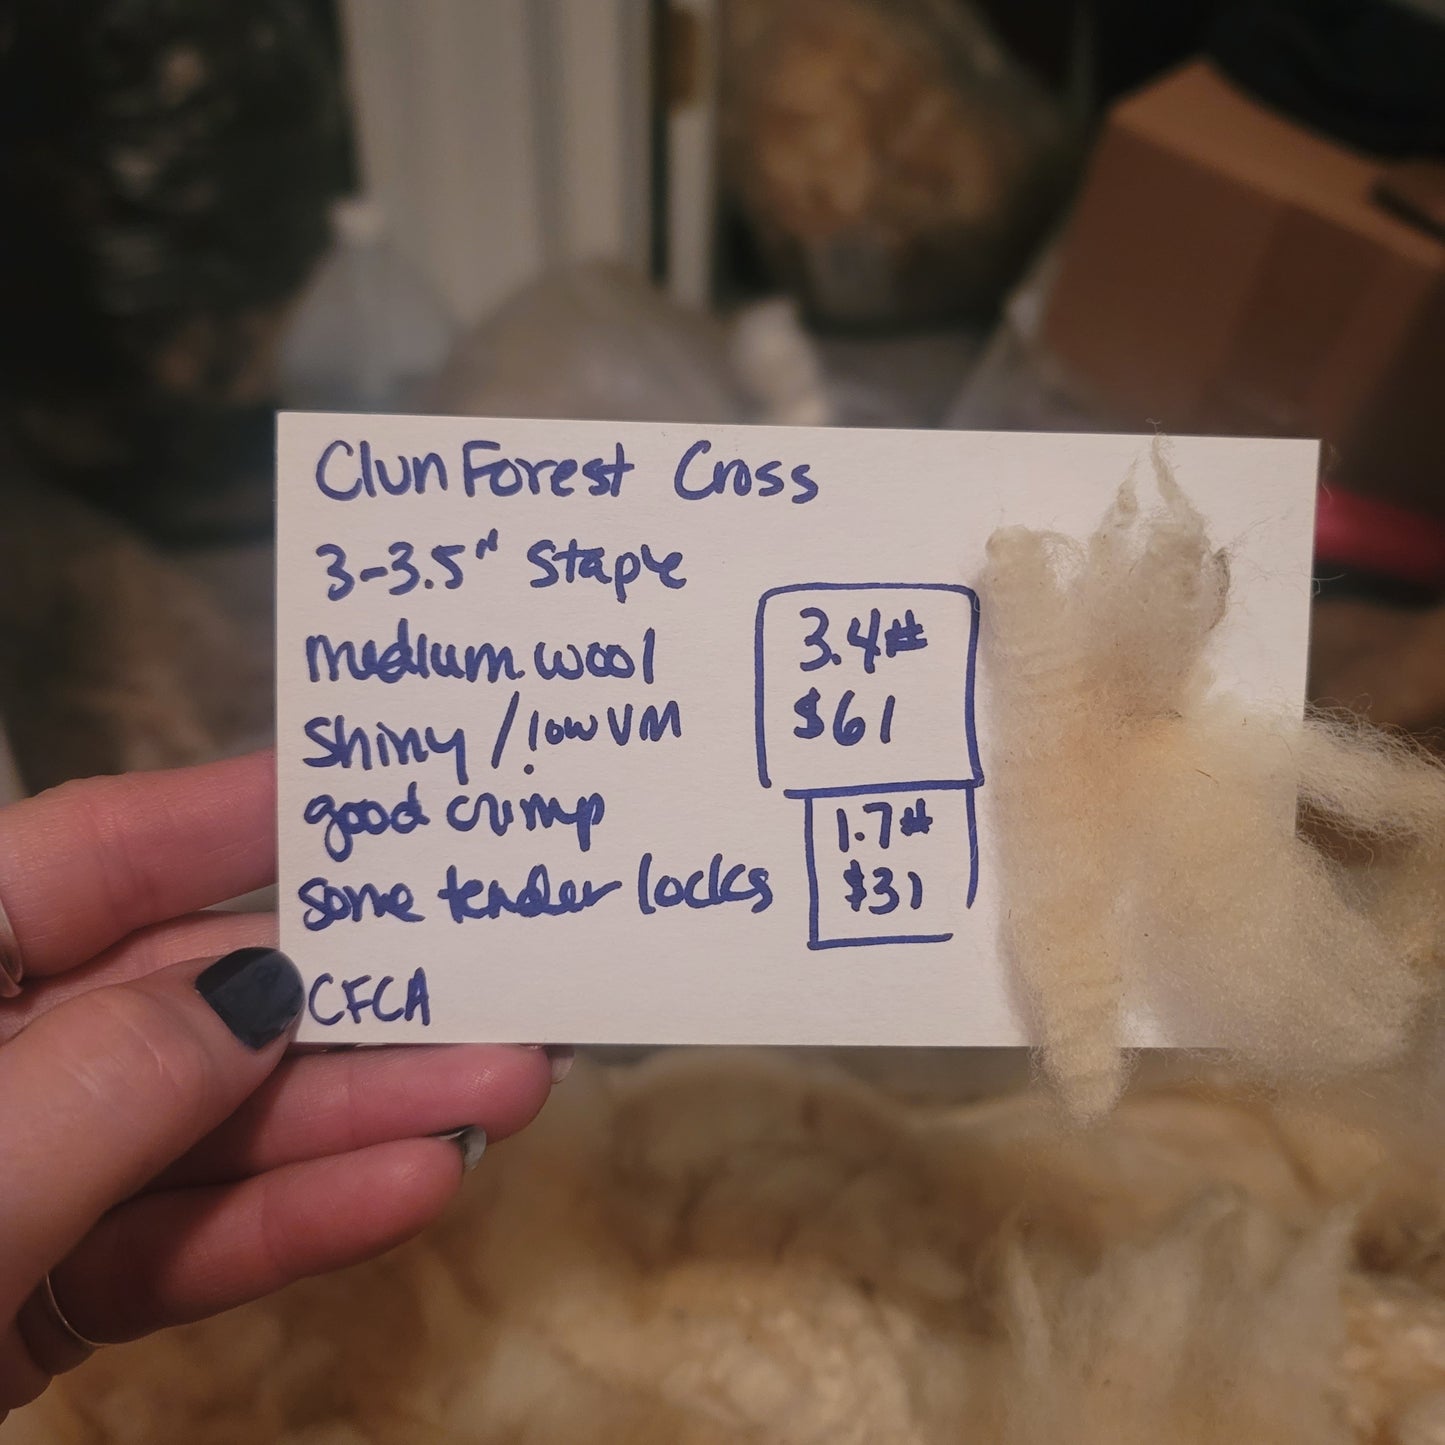 Clun Forest Cross
3-3.5" Staple
medium wool
shiny / low VM
good crimp
some tender locks
CFCA
3.4#
$61
1.7#
$31